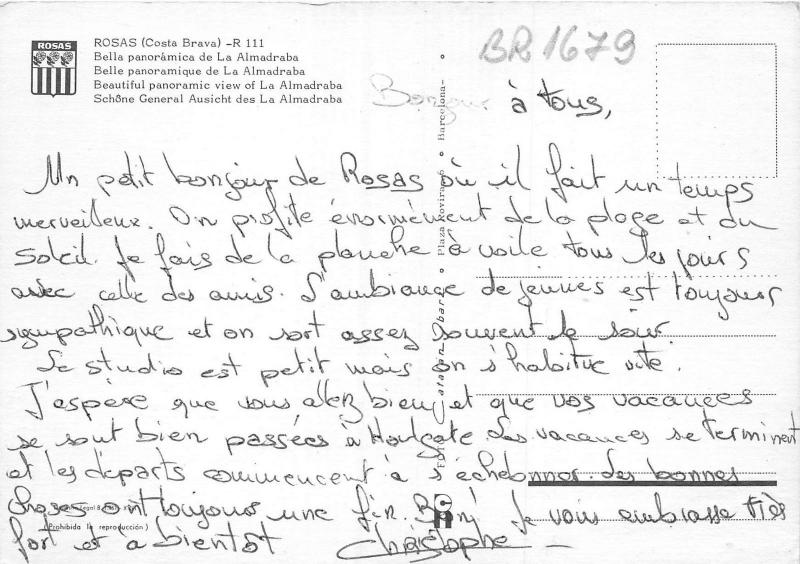 ROSAS
ROSAS (Costa Brava) -R 111
Bella panorámica de La Almadraba
Belle panoramique de La Almadraba
Beautiful panoramic view of La Almadraba
Schöne General Ausicht des La Almadraba
BR1679
Bonjour à tous,
Un petit bonjour de Rosas où il fait un temps
merveilleux. On profite énormément de la plage et du
soleil. Je fais de la planche à voile tous les jours
avec celle des amis. L'ambiance de jeunes est toujours
sympathique et on sort assez souvent le soir.
Le studio est petit mais on s'habitue vite.
J'espère que vous allez bien et que vos vacances
se sont bien passées à Houlgate. Les vacances se terminent
et les départs commencent à s'échelonner. Les bonnes
choses ont toujours une fin. Bon! Je vous embrasse très
fort et à bientôt Christophe
(Prohibida la reproducción)
Plaza Rovira
Barcelona